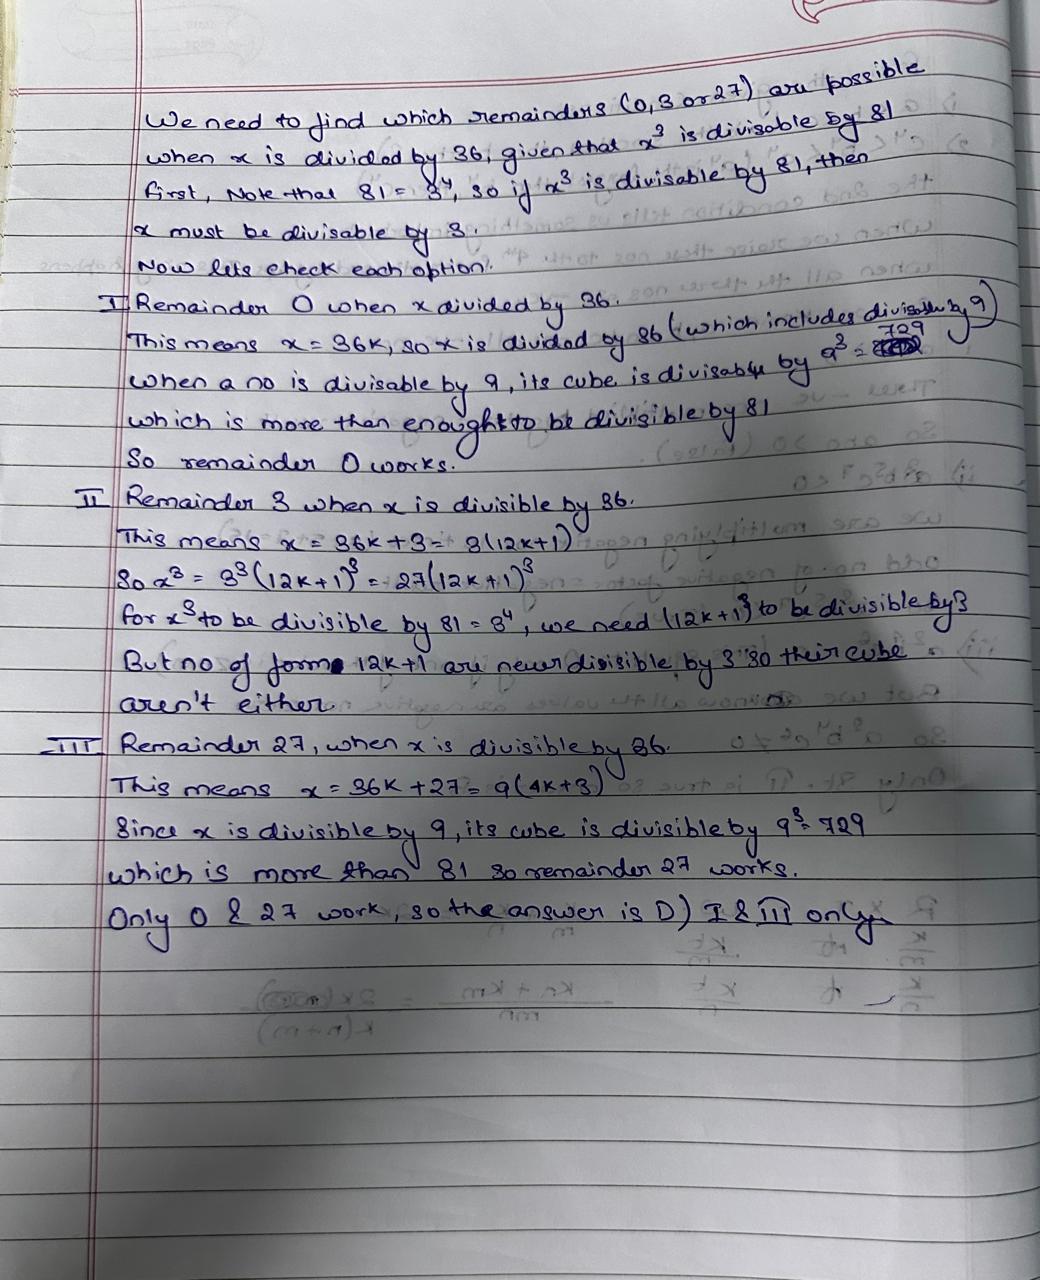 We need to find which remainders (0,3 or 27) are possible
when x is divided by 36, given that x³ is divisable by 81
first, Note that 81 = 3⁴, so if x³ is divisable by 81, then
x must be divisable by 3.
Now lets check each option.
I Remainder 0 when x divided by 36.
This means x = 36k, so x is divided by 36 (which includes divisable by 9)
when a no is divisable by 9, its cube is divisable by 9³ = 729
which is more than enought to be divisible by 81
So remainder 0 works.
II Remainder 3 when x is divisible by 36.
This means x = 36k + 3 = 3(12k+1)
So x³ = 3³(12k+1)³ = 27(12k+1)³
for x³ to be divisible by 81 = 3⁴, we need (12k+1)³ to be divisible by 3
But no of form 12k+1 are never divisible by 3 so their cube
aren't either.
III Remainder 27, when x is divisible by 36.
This means x = 36k + 27 = 9(4k+3)
Since x is divisible by 9, its cube is divisible by 9³ = 729
which is more than 81 so remainder 27 works.
Only 0 & 27 work, so the answer is D) I & III only